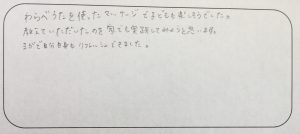 わらべうたを使ったマッサージで子どもも楽しそうでした。
教えていただいたのを家でも実践してみようと思います。
ママで自分自身もリフレッシュできました。